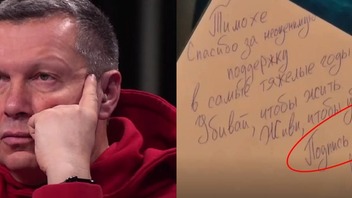 Тимохе
Спасибо за неоценимую
поддержку
в самые тяжелые годы
Убивай, чтобы жить
Живи, чтобы
Подпись